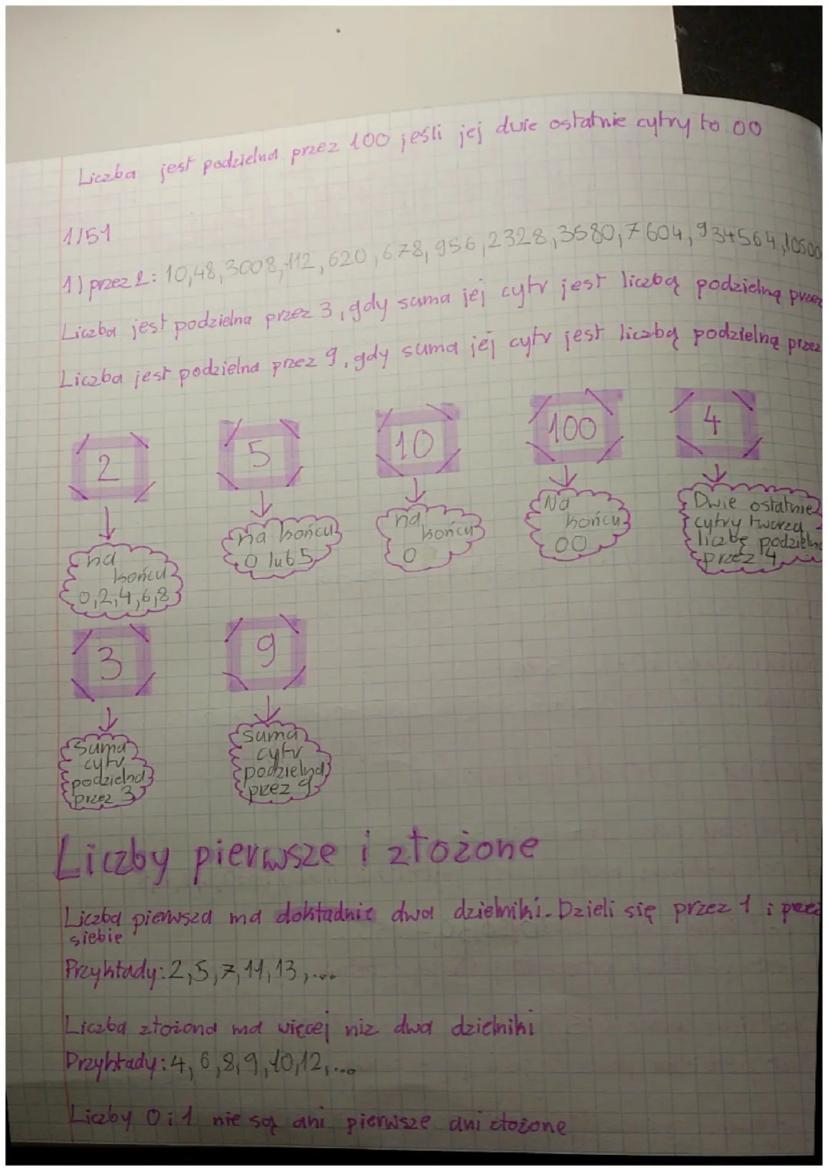 Liczba jest podzielna przez 100 jeśli jej dwie ostatnie cyfry to 00
1/51
1) przez 2: 10,48,3008,112,620,678,956,2328,3580,7604,934564,10500
Liczba jest podzielna przez 3, gdy suma jej cyfr jest liczbą podzielną przez
Liczba jest podzielna przez 9, gdy suma jej cyfr jest liczbą podzielną przez
2 5 10 100 4
na końcu 0,2,4,6,8
na końcu 0 lub 5
na końcu 0
Na końcu 00
Dwie ostatnie cyfry tworzą liczbę podzielną przez 4
3 9
Suma cyfr podzielna przez 3
suma cyfr podzielna przez 9
Liczby pierwsze i złożone
Liczba pierwsza ma dokładnie dwa dzielniki. Dzieli się przez 1 i przez
siebie
Przykłady: 2,5,7,11,13,...
Liczba złożona ma więcej niż dwa dzielniki
Przykłady: 4,6,8,9,10,12,...
Liczby 0 i 1 nie są ani pierwsze ani złożone